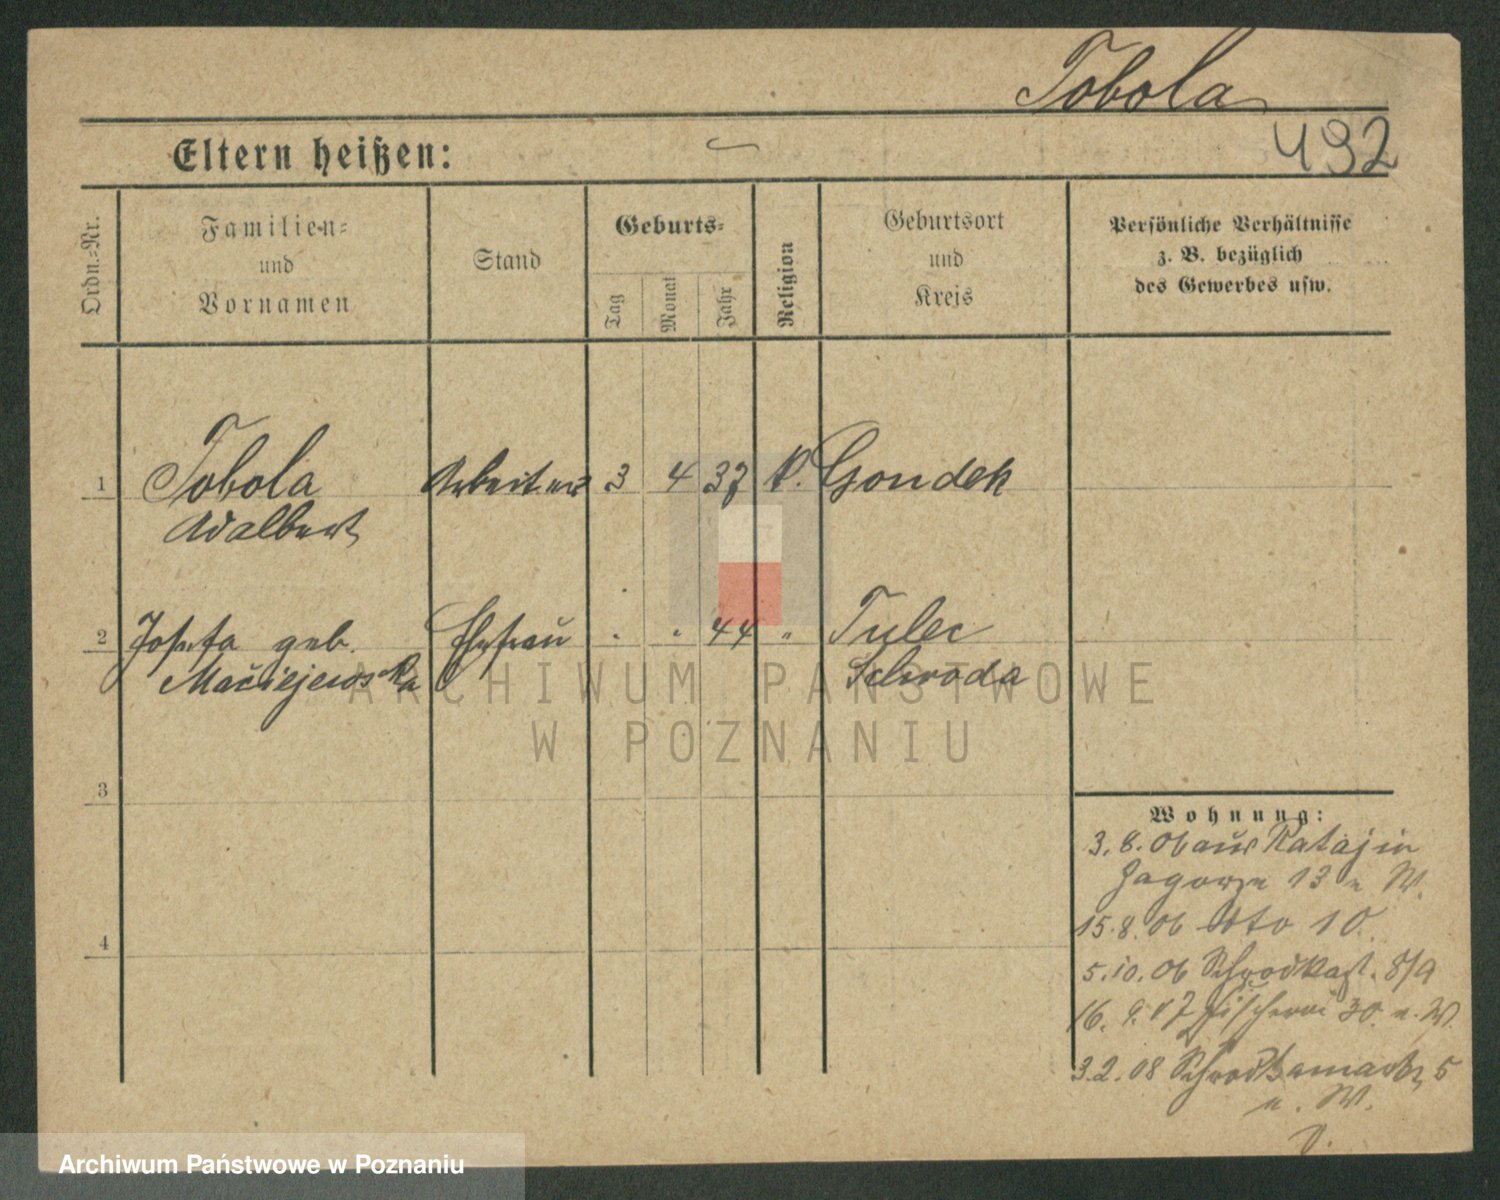 Tobola
Eltern heißen:
492
Ordn.-Nr.
Familien-
und
Vornamen
Stand
Geburts-
Tag
Monat
Jahr
Religion
Geburtsort
und
Kreis
Persönliche Verhältnisse
z. B. bezüglich
des Gewerbes usw.
1 Tobola Arbeiter 3 4 37 k. Gondek
Adalbert
2 Josefa geb. Ehefrau . . 44 " Tulec
Maciejewska Schroda
ARCHIWUM PAŃSTWOWE
W POZNANIU
3
Wohnung:
3.8.06 aus Rataj in
Zagorze 13 n W.
4
15.8.06 Otto 10.
5.10.06 Schrodkast. 8/9
16.9.07 Fischerei 30. n. W.
3.2.08 Schrodkamarkt 5
n. W.
Archiwum Państwowe w Poznaniu